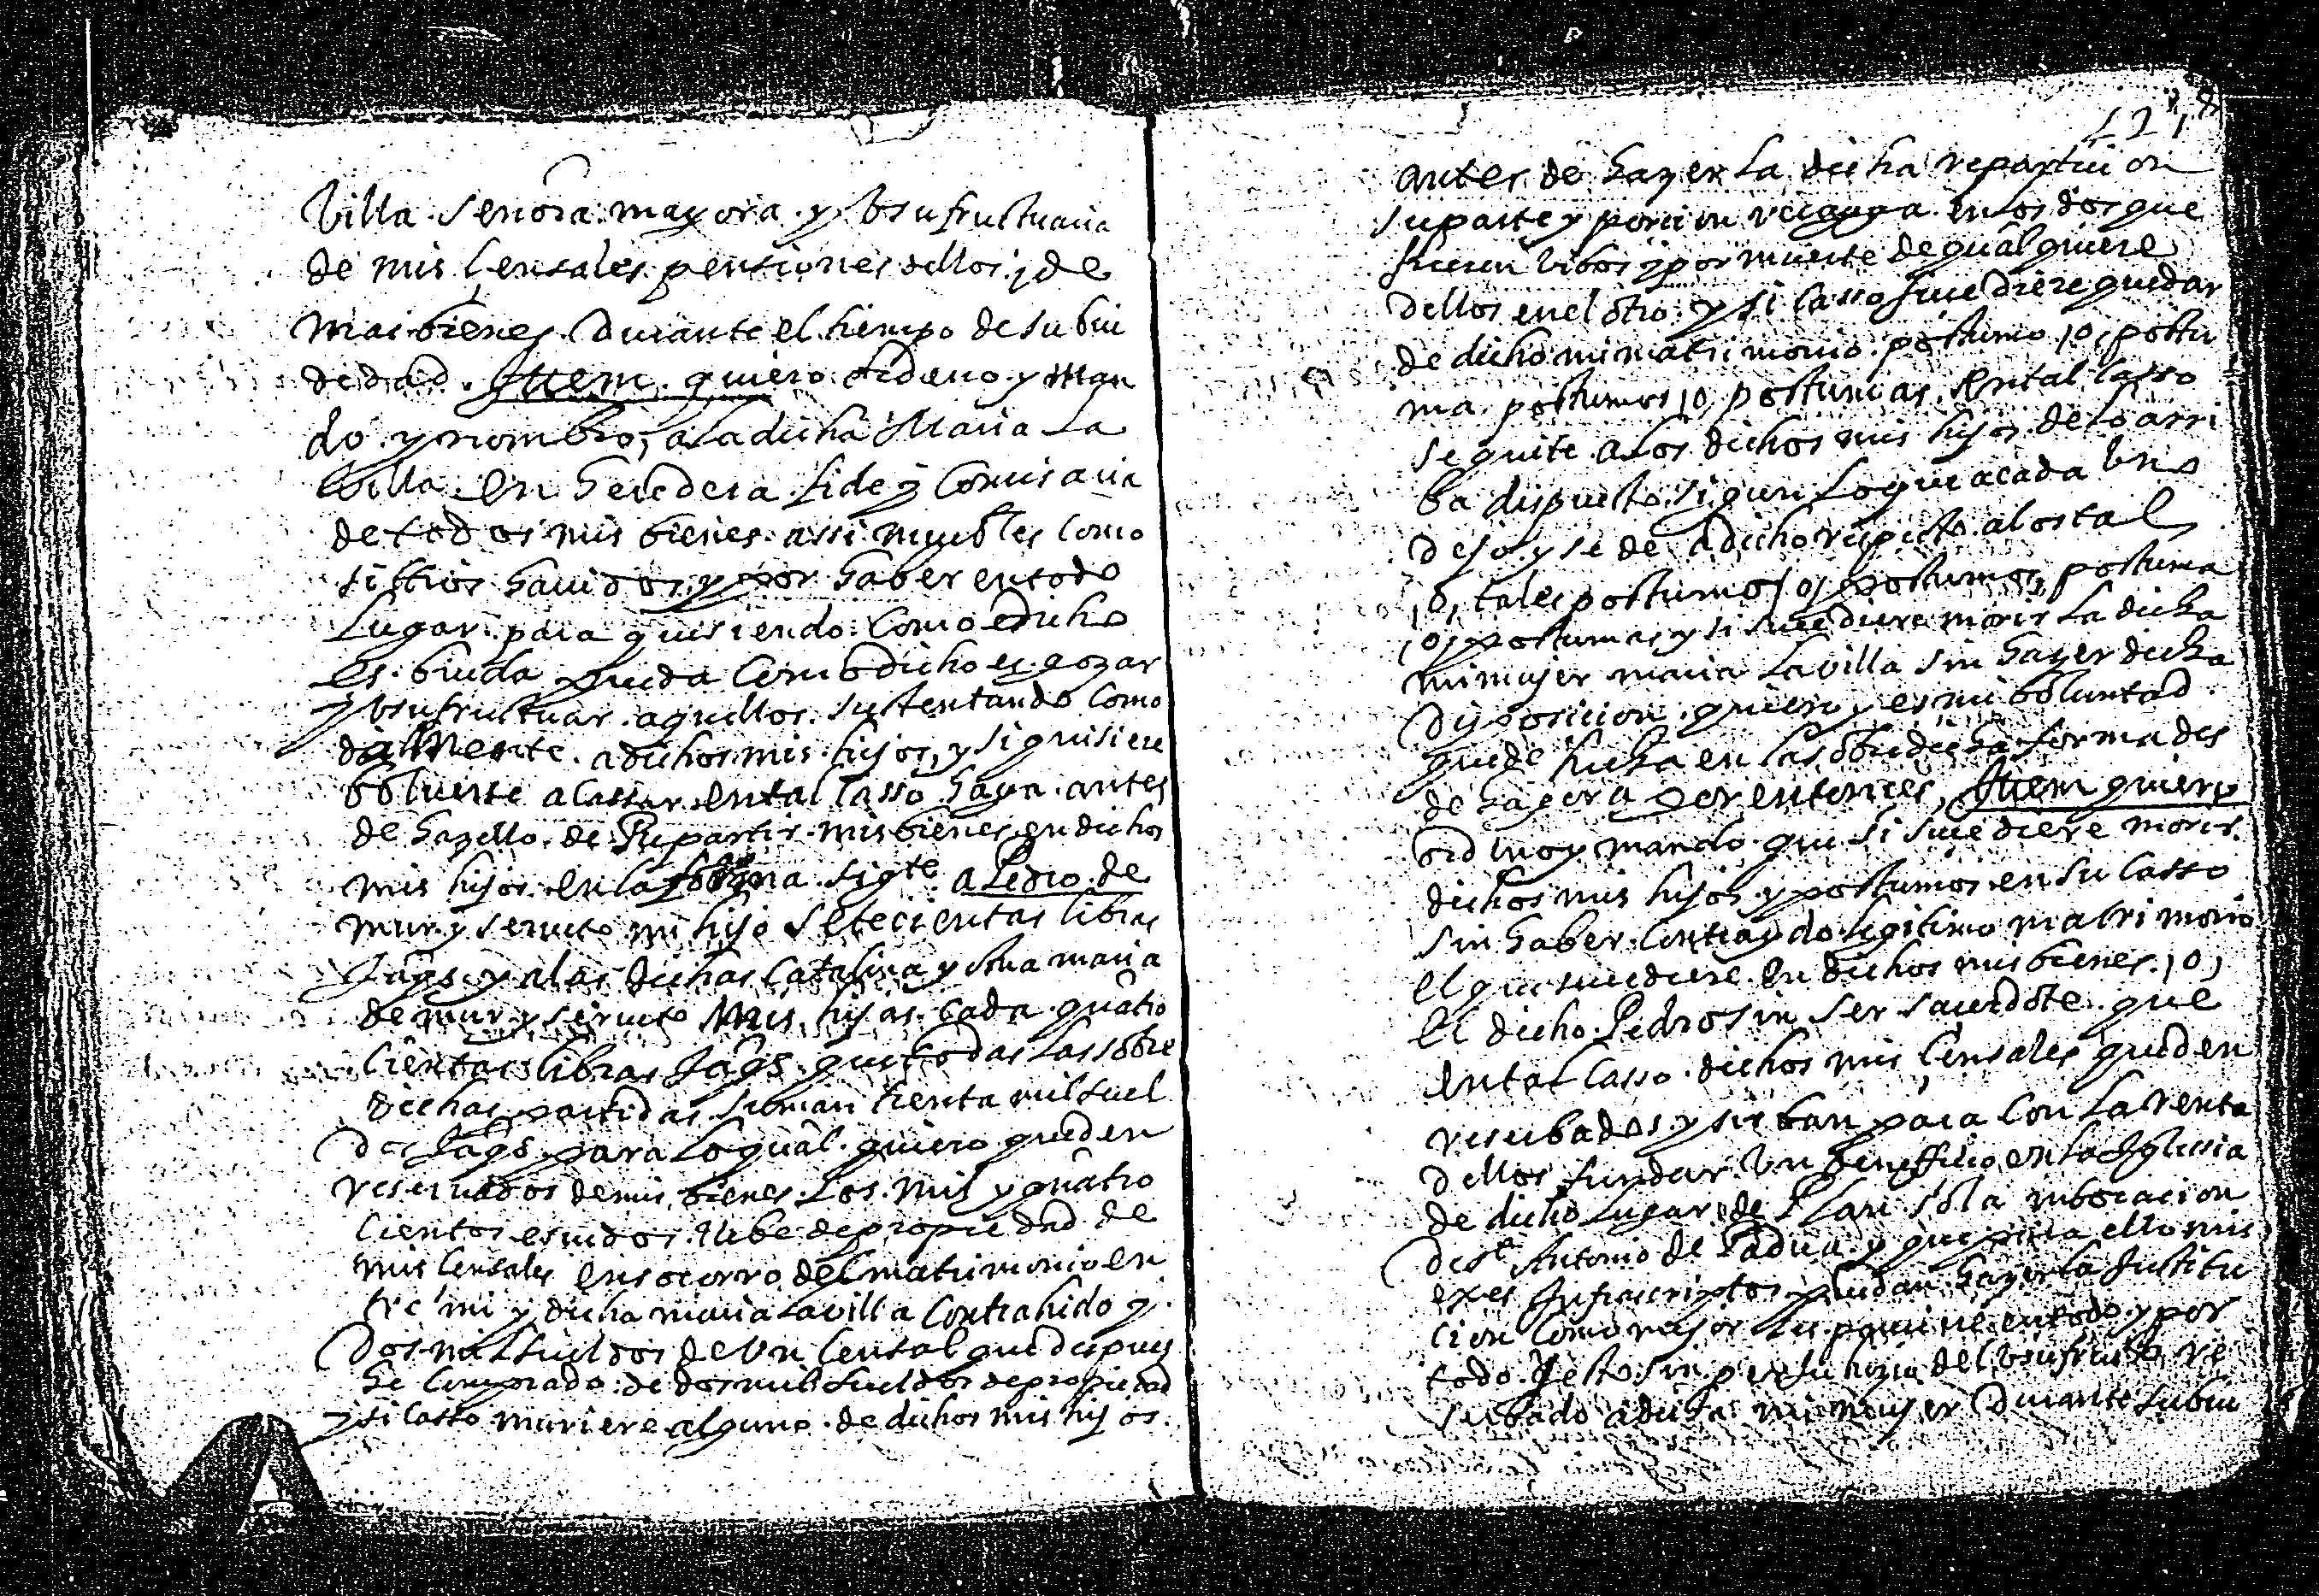 Villa señora mayora y Usufructuaria
de mis Censales pensiones dellos y de
mas bienes Durante el tiempo de su biu
dedad. Ittem quiero ordeno y man
do y nombro, a la dicha Maria La
Villa en heredera fide y Comisaria
de todos mis bienes assi muebles como
sittios hauidos y por haber en todo
Lugar para que siendo como dicho
es biuda pueda como dicho es gozar
y Usufructuar aquellos sustentando como
dalmente a dichos mis hijos, y si quisiere
boluerse a Cassar en tal Casso haya antes
de hazello de Repartir mis bienes en dichos
mis hijos en la forma sigte a Pedro de
mur y serueto mi hijo setecientas libras
Jaqs y a las dichas Catalina y Ana maria
de mur y serueto mis hijas cada quatro
cientas libras Jaqs que todas las sobre
dichas partidas suman trenta mil suel
dos Jaqs para lo qual quiero queden
reseruados de mis bienes los mil y quatro
cientos escudos de propiedad de
mis Censales en socorro del matrimonio en
tre mi y dicha maria Lavilla Contrahido y
Dos mil sueldos de Un Censal que despues
he Comprado de dos mil sueldos de propiedad
y si casso muriere alguno de dichos mis hijos
antes de hazer La dicha reparticion
su parte y porcion en los dos que
fueren bibos y por muerte de qualquiere
Dellos en el otro y si Casso sucediere quedar
de dicho mi matrimonio postumo, o, postu
ma postumos, o, postumas en tal Casso
se quite a los dichos mis hijos de lo arri
ba dispuesto sigun lo que a cada Uno
Dejo y se de a dicho respecto a los tal
, o, tales postumo, o, postumos, postuma
, o, postumas y si sucediere morir La dicha
mi mujer maria Lavilla sin hazer dicha
Disposicion quiero y es mi boluntad
quede hecha en la sobredicha forma des
de hagora por entonces, Ittem quiero
ordeno y mando que si sucediere morir
dichos mis hijos y postumos en su Casso
sin haber Contraydo legitimo matrimonio
el que sucediere en dichos mis bienes, o,
el dicho Pedro sin ser sacerdote que
en tal Casso dichos mis Censales queden
reserbados y sirban para Con La renta
Dellos fundar Un beneffiçio en la Iglesia
de dicho Lugar de Plan so la inbocacion
de Sn Antonio de Padua y que para ello mis
exes Infrascriptos puedan hazer la Institu
cion Como mejor les pareciere en todo y por
todo. Y esto sin perjuhizio del Usufructo re
serbado a dicha mi mujer Durante su biu